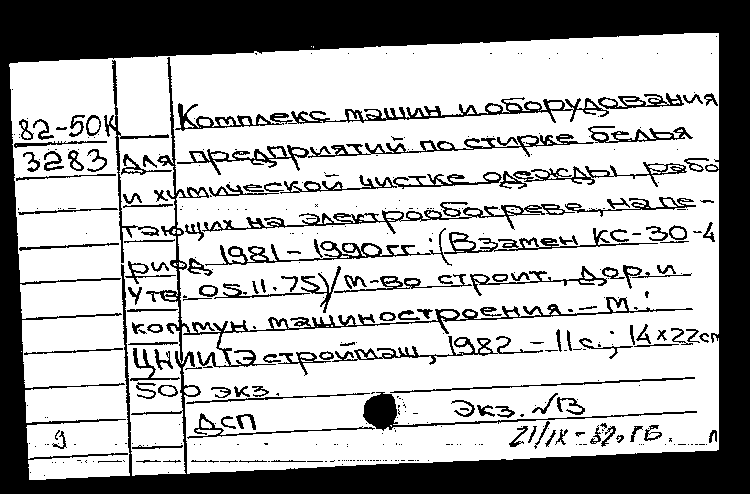 82-50К
3283
Комплекс машин и оборудования
для предприятий по стирке белья
и химической чистке одежды, рабо
тающих на электрообогреве, на пе-
риод 1981-1990гг.: (Взамен КС-30-4
Утв. 05.11.75)/М-во строит., дор. и
коммун. машиностроения. - М.:
ЦНИИТЭстроймаш, 1982. - 11с.; 14х22см
500 экз.
ДСП экз. №13
9 21/IX-82. ГБ. п